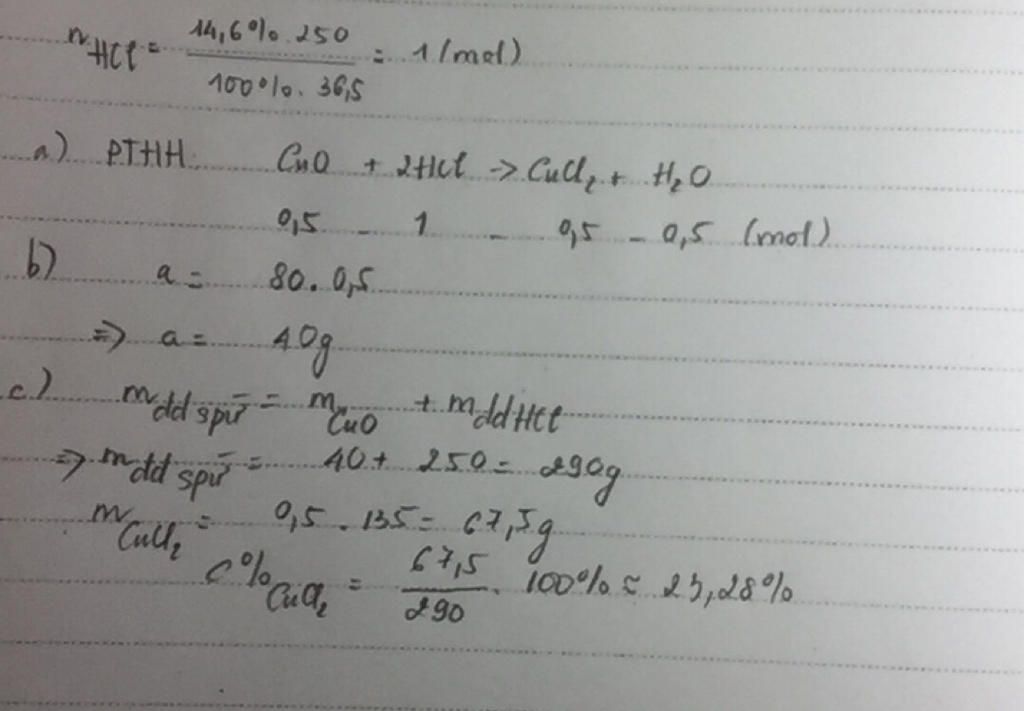 nHCl = 14,6%.250 / 100%.36,5 = 1 (mol)
a) PTHH: CuO + 2HCl -> CuCl2 + H2O
0,5 - 1 - 0,5 - 0,5 (mol)
b) a = 80.0,5
=> a = 40g
c) mdd spứ = mCuO + mddHCl
=> mdd spứ = 40 + 250 = 290g
mCuCl2 = 0,5.135 = 67,5g
C%CuCl2 = 67,5 / 290 . 100% ≈ 23,28%